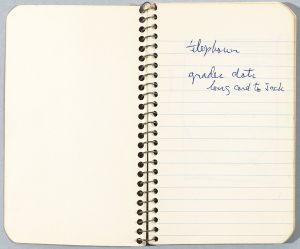 telephone
grades dots
long cord to Jack